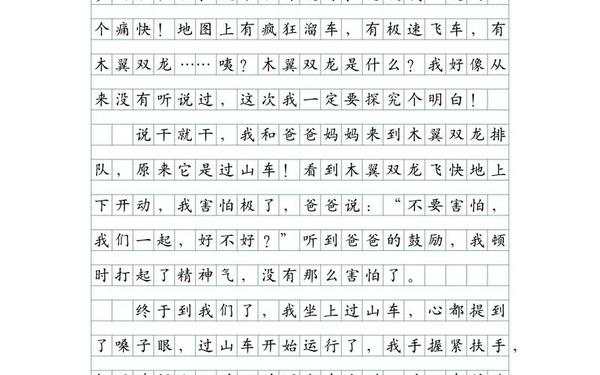 个痛快！地图上有疯狂溜车，有极速飞车，有
木翼双龙……咦？木翼双龙是什么？我好像从
来没有听说过，这次我一定要探究个明白！
说干就干，我和爸爸妈妈来到木翼双龙排
队，原来它是过山车！看到木翼双龙飞快地上
下开动，我害怕极了，爸爸说：“不要害怕，
我们一起，好不好？”听到爸爸的鼓励，我顿
时打起了精神气，没有那么害怕了。
终于到我们了，我坐上过山车，心都提到
了嗓子眼，过山车开始运行了，我手握紧扶手，